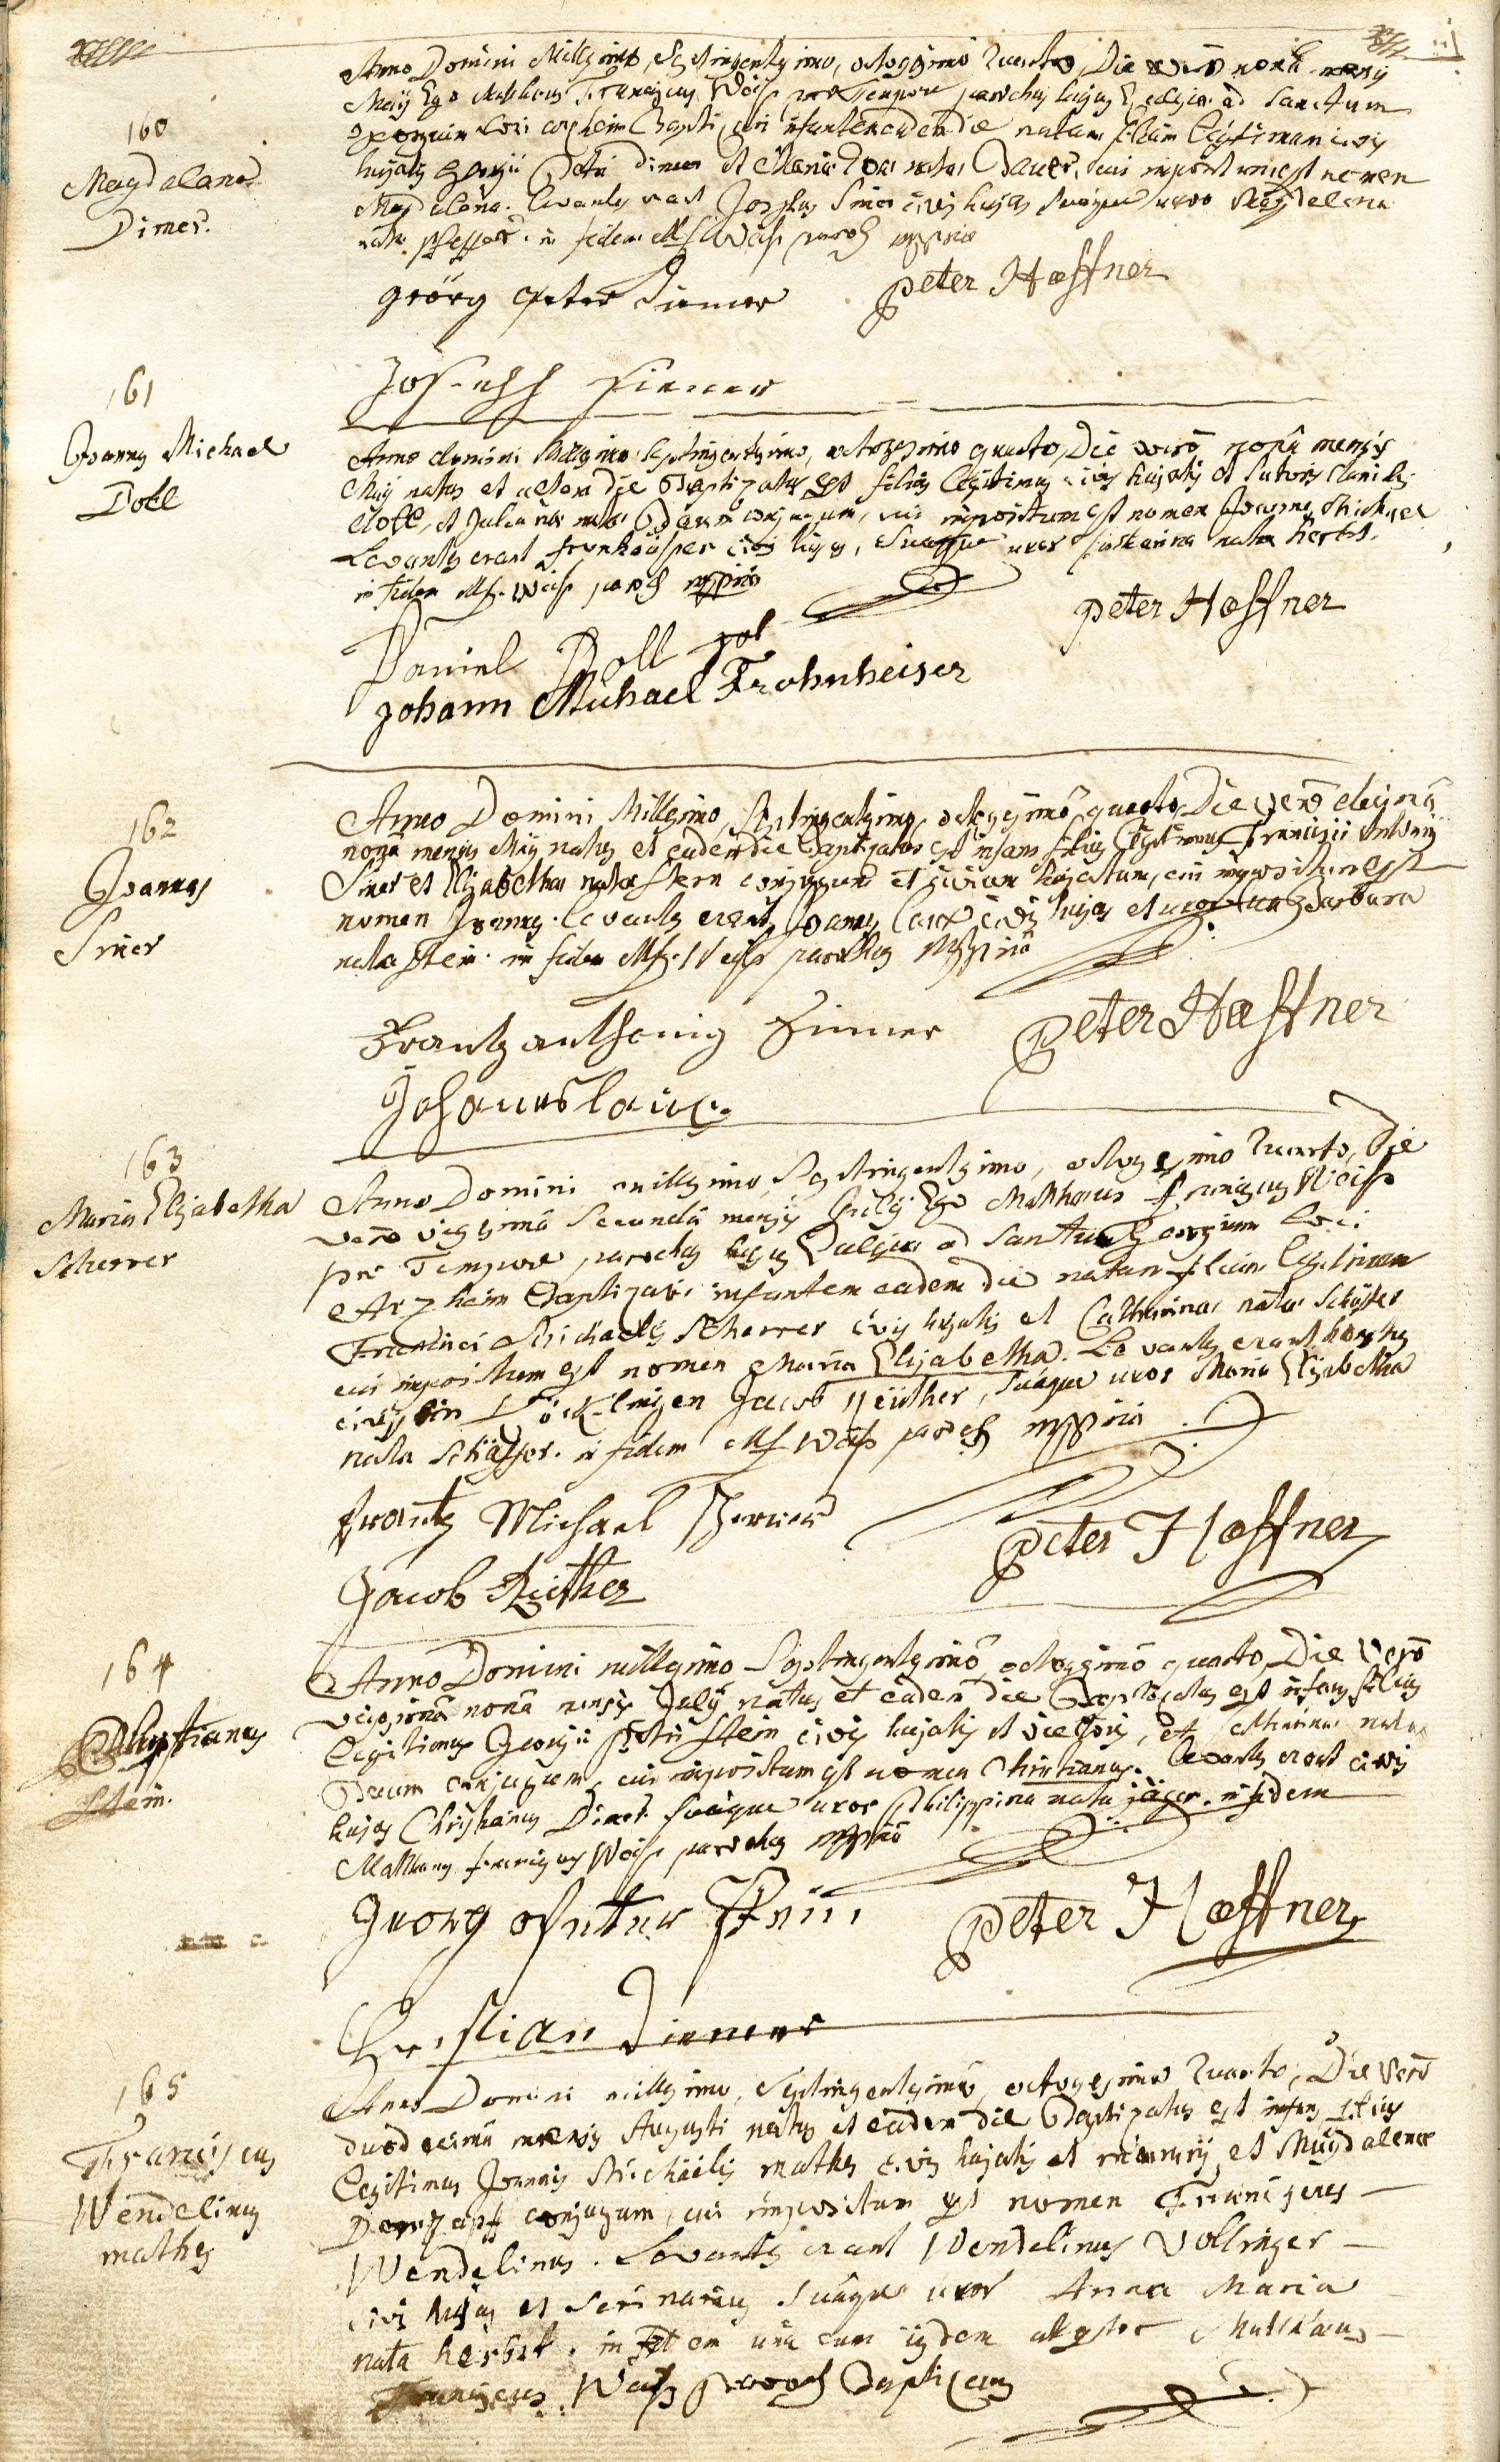 160
Magdalena
Dimer.
Anno Domini Millesimo, septingentesimo, octogesimo Quarto, Die vero nona mensis
Maij Ego Matthaeus Franciscus Weiss pro Tempore parochus hujus Ecclesiae ad Sanctum
Georgium loci Arzheim Baptizavi infantem eadem die natam filiam legitimam civis
hujatis Georgii Petri Dimer et Maria Eva nata Dauer, cui impositum est nomen
Magdalena. levantes erant Josephus Siner civis hujas suaque uxor Magdalena
nata Pfeffer. in fidem M F Weiss paroch mppria
Görg Peter Diemer Peter Hoeffner
Joseph Siener
161
Joannes Michael
Doll
Anno domini Millesimo septingentesimo, octogesimo quarto, Die vero nona mensis
Maij natus et eadem die Baptizatus est filius legitimus civis hujatis et sutoris Danielis
Doll, et Juliana nata Daum conjugum, cui impositum est nomen Joannes Michael
Levantes erant civis hujas, suaque uxor Catharina nata herbst.
in fidem M F. Weiss paroch mppria
Peter Hoeffner
Daniel Doll
Johann Michael Frohnheiser
162
Joannes
Siner
Anno Domini Millesimo, Septingentesimo, octogesimo quarto, Die vero decima
nona mensis Maij natus et eadem die Baptizatus est infans filius legitimus Francisci Antonij
Siner et Elisabetha nata Stern conjugum et civium hujatum, cui impositum est
nomen Joannes. levantes erant Joannes Laux civis hujas et uxor Barbara
nata Stein. in fidem M F. Weiss parochus Mppria
Frantz anthonig Sinner Peter Hoeffner
Johannes laux.
163
Maria Elisabetha
Scherrer
Anno Domini millesimo, Septingentesimo, octogesimo Quarto, Die
vero vigesima Secunda mensis Julij Ego Matthaeus Franciscus Weiss
pro Tempore parochus hujus Ecclesiae ad Sanctum Georgium loci
Arzheim Baptizavi infantem eadem die natam filiam legitimam
Francisci Michaelis Scherrer civis hujatis et Catharina nata Schäffer
cui impositum est nomen Maria Elisabetha. Levantes erant
civis in Böcklingen Jacob Reüther, suaque uxor Maria Elisabetha
nata Schäffer. in fidem M F Weiss paroch mppria
frantz Michael Scherrer Peter Hoeffner
Jacob Reüther
164
Christianus
Stein.
Anno Domini millesimo Septingentesimo, octogesimo quarto, Die vero
vigesima nona mensis Julij natus et eadem die Baptizatus est infans filius
legitimus Georgii Petri Stein civis hujatis et vietoris, et Marina nata
Daum conjugum, cui impositum est nomen Christianus. levantes erant civis
hujas Christianus Dimer suaque uxor Philippina nata jäger. in fidem
Matthaeus Franciscus Weiss parochus mppria
Georg Peter Stein Peter Hoeffner
Christian Diemer
165
Franciscus
Wendelinus
mathes
Anno Domini millesimo, Septingentesimo, octogesimo Quarto, Die vero
duodecima mensis Augusti natus et eadem die Baptizatus est infans filius
legitimus Joannis Michaëlis mathes civis hujatis et murarij, et Magdalena
Dorzapf conjugum, cui impositum est nomen Franciscus
Wendelinus. Levantes erant Wendelinus Vollinger
civis hujas et serinarius suaque uxor Anna Maria
nata herbst. in fidem una cum iisdem attestor Matthaeus
Franciscus Weiss paroch Baptizans